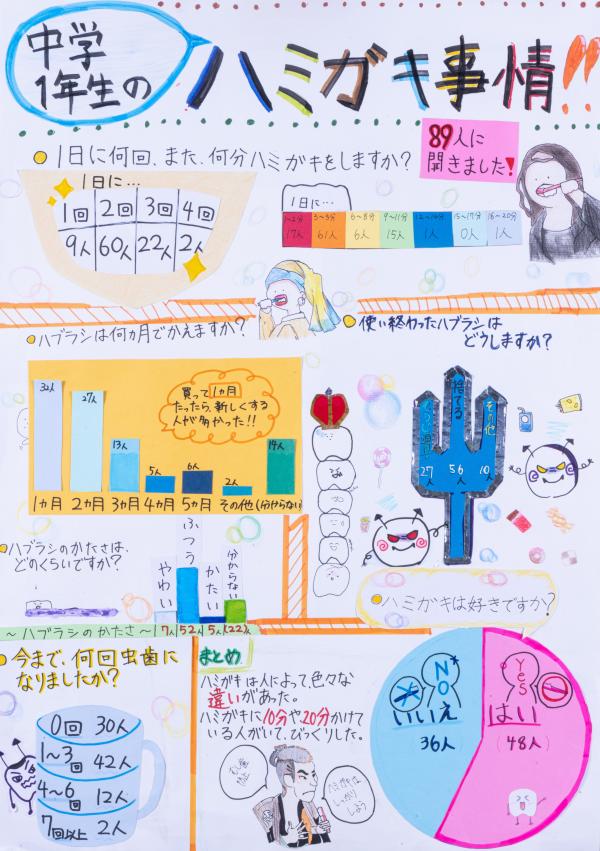 中学
1年生の
ハミガキ事情!!
89人に
聞きました!
1日に何回、また、何分ハミガキをしますか?
1日に…
1回 2回 3回 4回
9人 60人 22人 2人
1日に…
1~2分 3~5分 6~8分 9~11分 12~14分 15~17分 18~20分
17人 61人 6人 15人 1人 0人 1人
ハブラシは何ヵ月でかえますか?
買って1ヵ月
たったら、新しくする
人が多かった!!
32人 27人 13人 5人 6人 2人 14人
1ヵ月 2ヵ月 3ヵ月 4ヵ月 5ヵ月 その他 (分からない)
使い終わったハブラシは
どうしますか?
捨てる
その他
27人 56人 10人
ハブラシのかたさは、
どのくらいですか?
やわい ふつう かたい 分からない
~ハブラシのかたさ~ 7人 52人 5人 (22)人
ハミガキは好きですか?
NO
いいえ
36人
Yes
はい
(48人)
今まで、何回虫歯に
なりましたか?
0回 30人
1~3回 42人
4~6回 12人
7回以上 2人
まとめ
ハミガキは人によって、色々な
違いがあった。
ハミガキに10分や20分かけて
いる人がいて、びっくりした。
ハミガキは
しっかり
しよう